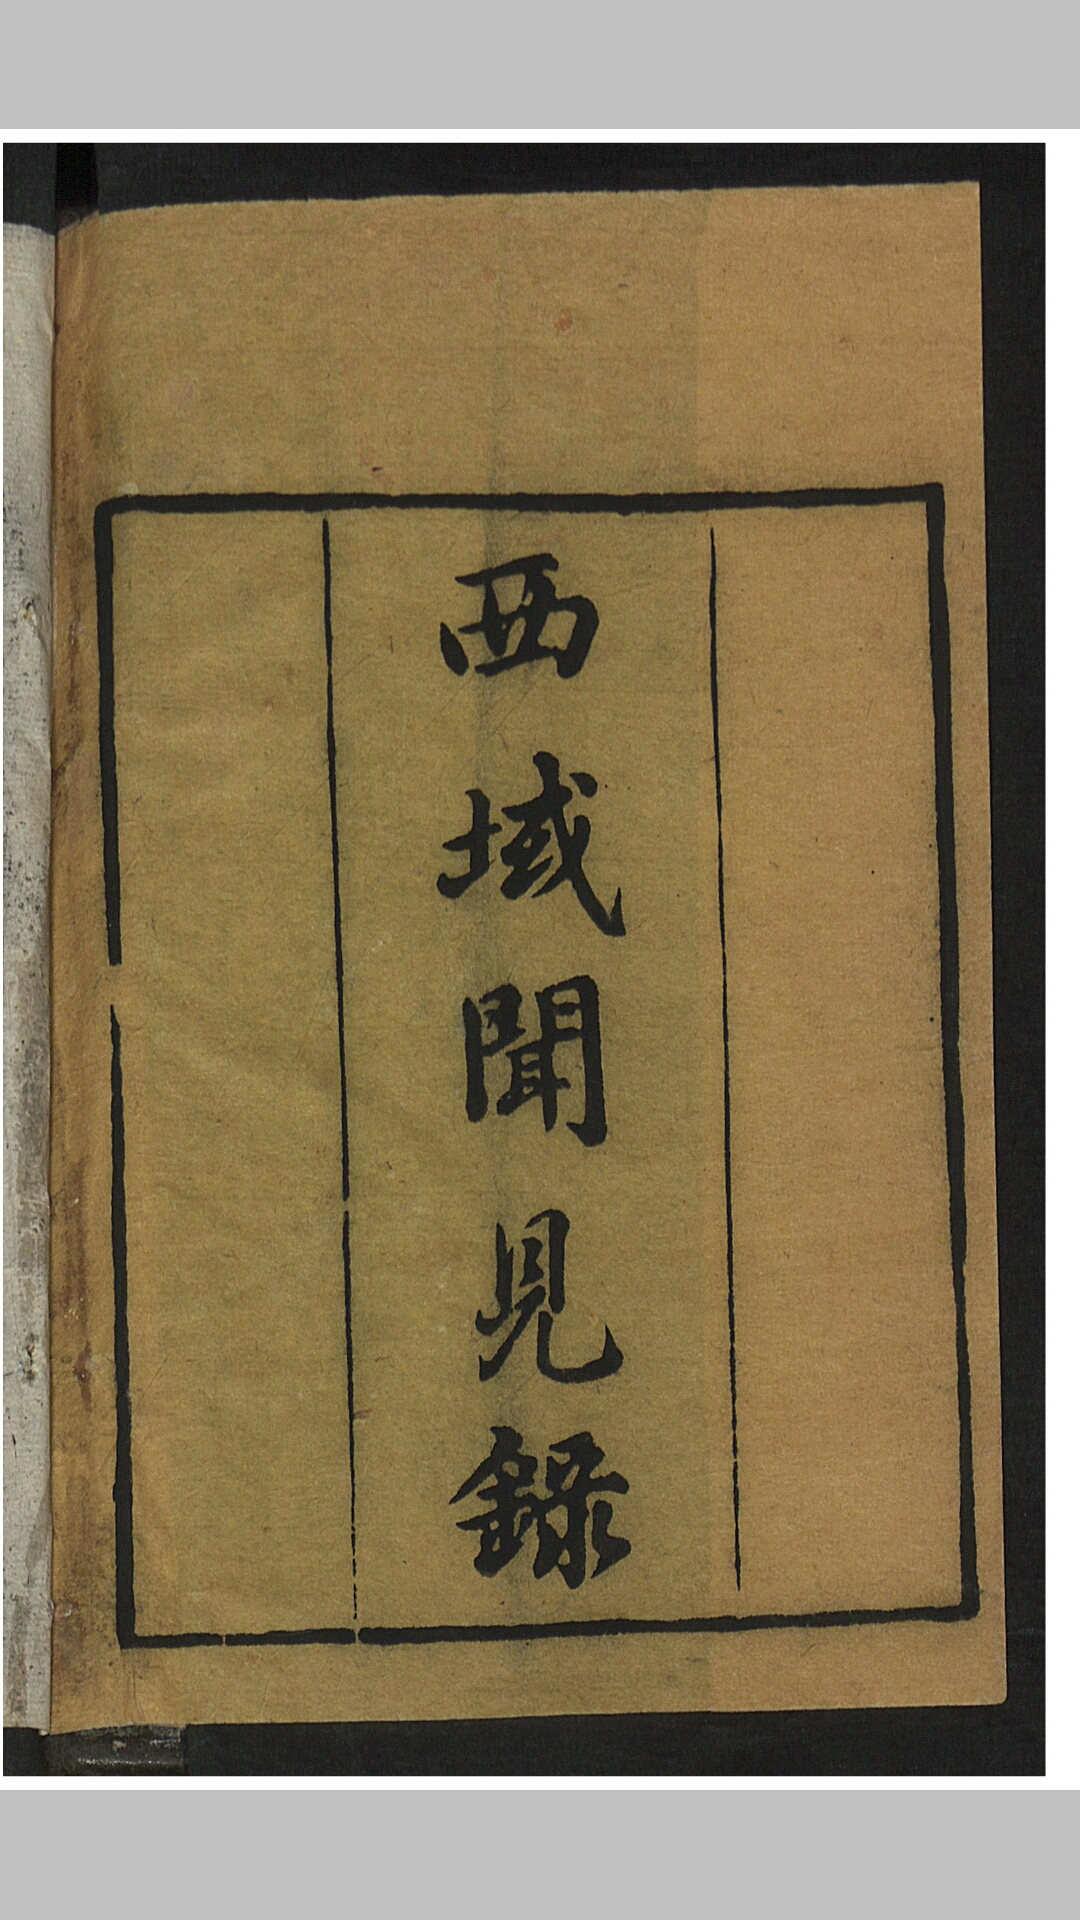 西域聞見錄